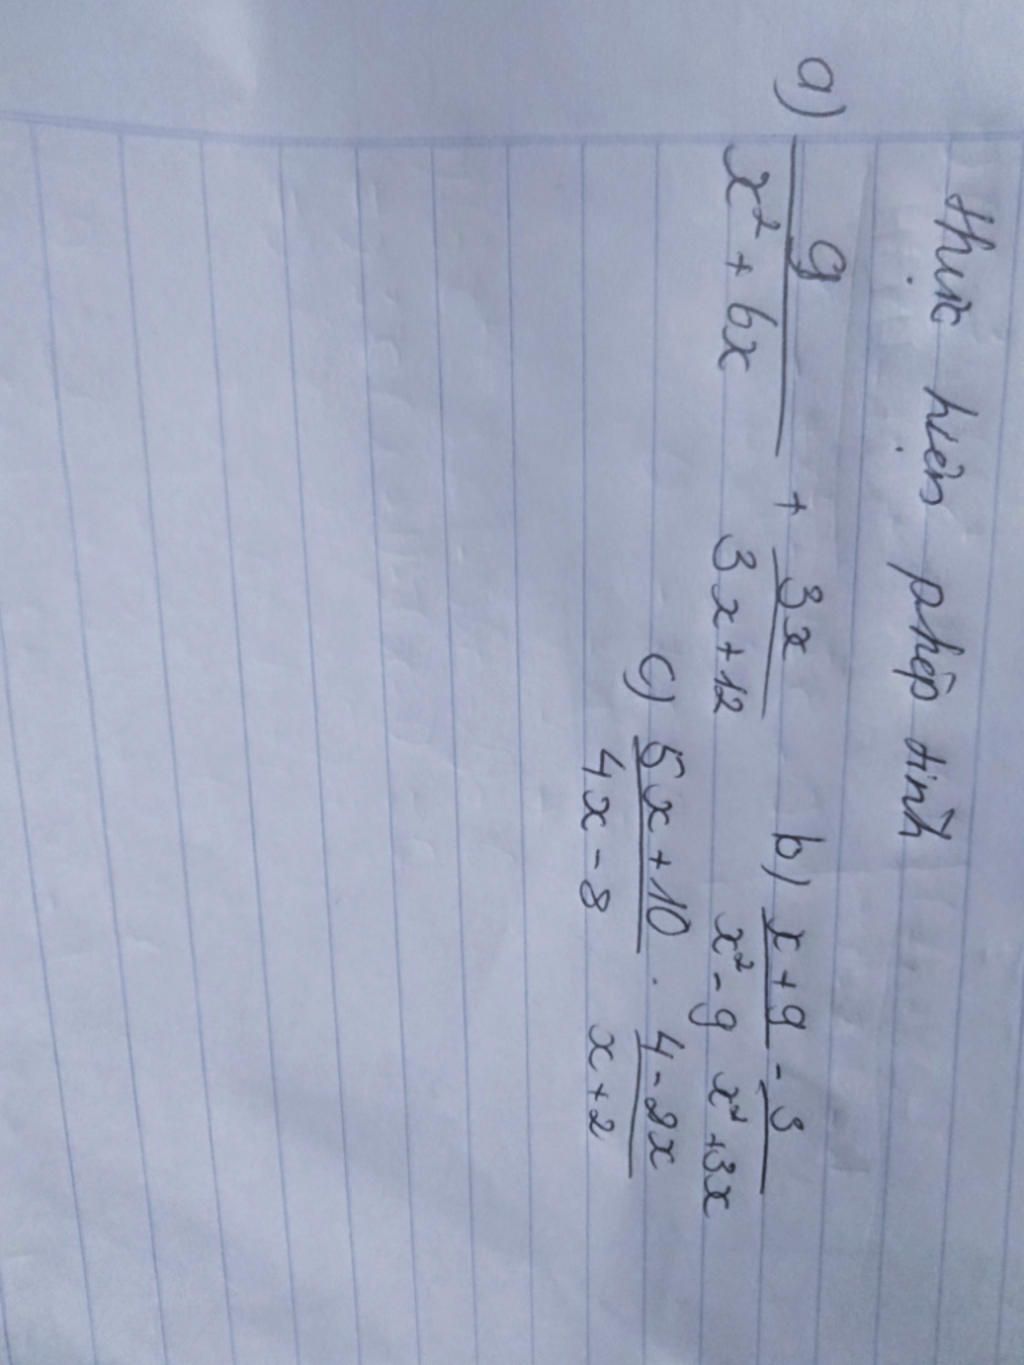 thực hiện phép tính
a) \frac{9}{x² + 6x} + \frac{3x}{3x+12} b) \frac{x+9}{x²-9} - \frac{3}{x²+3x}
c) \frac{5x+10}{4x-8} . \frac{4-2x}{x+2}